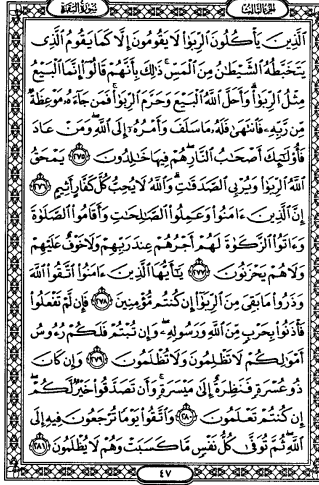 الجزء الثالث سورة البقرة
الَّذِينَ يَأْكُلُونَ الرِّبَوٰا۟ لَا يَقُومُونَ إِلَّا كَمَا يَقُومُ الَّذِى
يَتَخَبَّطُهُ الشَّيْطَٰنُ مِنَ الْمَسِّ ذَٰلِكَ بِأَنَّهُمْ قَالُوٓا۟ إِنَّمَا الْبَيْعُ
مِثْلُ الرِّبَوٰا۟ وَأَحَلَّ اللَّهُ الْبَيْعَ وَحَرَّمَ الرِّبَوٰا۟ فَمَن جَآءَهُۥ مَوْعِظَةٌ
مِّن رَّبِّهِۦ فَانتَهَىٰ فَلَهُۥ مَا سَلَفَ وَأَمْرُهُۥٓ إِلَى اللَّهِ وَمَنْ عَادَ
فَأُو۟لَٰٓئِكَ أَصْحَٰبُ النَّارِ هُمْ فِيهَا خَٰلِدُونَ ٢٧٥ يَمْحَقُ
اللَّهُ الرِّبَوٰا۟ وَيُرْبِى الصَّدَقَٰتِ وَاللَّهُ لَا يُحِبُّ كُلَّ كَفَّارٍ أَثِيمٍ ٢٧٦
إِنَّ الَّذِينَ ءَامَنُوا۟ وَعَمِلُوا۟ الصَّٰلِحَٰتِ وَأَقَامُوا۟ الصَّلَوٰةَ
وَءَاتَوُا۟ الزَّكَوٰةَ لَهُمْ أَجْرُهُمْ عِندَ رَبِّهِمْ وَلَا خَوْفٌ عَلَيْهِمْ
وَلَا هُمْ يَحْزَنُونَ ٢٧٧ يَٰٓأَيُّهَا الَّذِينَ ءَامَنُوا۟ اتَّقُوا۟ اللَّهَ
وَذَرُوا۟ مَا بَقِىَ مِنَ الرِّبَوٰٓا۟ إِن كُنتُم مُّؤْمِنِينَ ٢٧٨ فَإِن لَّمْ تَفْعَلُوا۟
فَأْذَنُوا۟ بِحَرْبٍ مِّنَ اللَّهِ وَرَسُولِهِۦ وَإِن تُبْتُمْ فَلَكُمْ رُءُوسُ
أَمْوَٰلِكُمْ لَا تَظْلِمُونَ وَلَا تُظْلَمُونَ ٢٧٩ وَإِن كَانَ
ذُو عُسْرَةٍ فَنَظِرَةٌ إِلَىٰ مَيْسَرَةٍ وَأَن تَصَدَّقُوا۟ خَيْرٌ لَّكُمْ
إِن كُنتُمْ تَعْلَمُونَ ٢٨٠ وَاتَّقُوا۟ يَوْمًا تُرْجَعُونَ فِيهِ إِلَى
اللَّهِ ثُمَّ تُوَفَّىٰ كُلُّ نَفْسٍ مَّا كَسَبَتْ وَهُمْ لَا يُظْلَمُونَ ٢٨١
٤٧